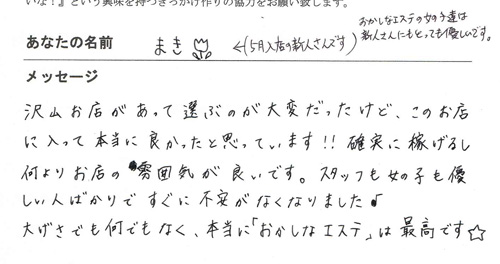 いな！』という興味を持つきっかけ作りの協力をお願い致します。
おかしなエステの女の子達は
新人さんにもとっても優しいです。
あなたの名前 まき ←(5月入店の新人さんです)
メッセージ
沢山お店があって選ぶのが大変だったけど、このお店
に入って本当に良かったと思っています!! 確実に稼げるし
何よりお店の雰囲気が良いです。スタッフも女の子も優
しい人ばかりですぐに不安がなくなりました♪
大げさでも何でもなく、本当に「おかしなエステ」は最高です☆